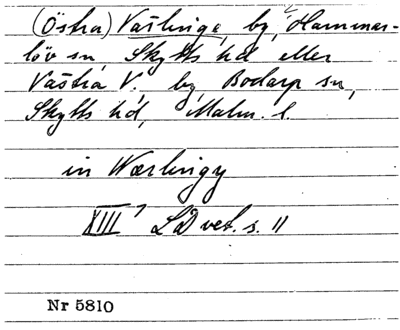 (Östra) Värlinge, by, Hammar-
löv sn, Skytts hd eller
Västra V. by, Bodarp sn,
Skytts hd, Malm. l.
in Wærlingy
XIII' LD vet. s. 11
Nr 5810